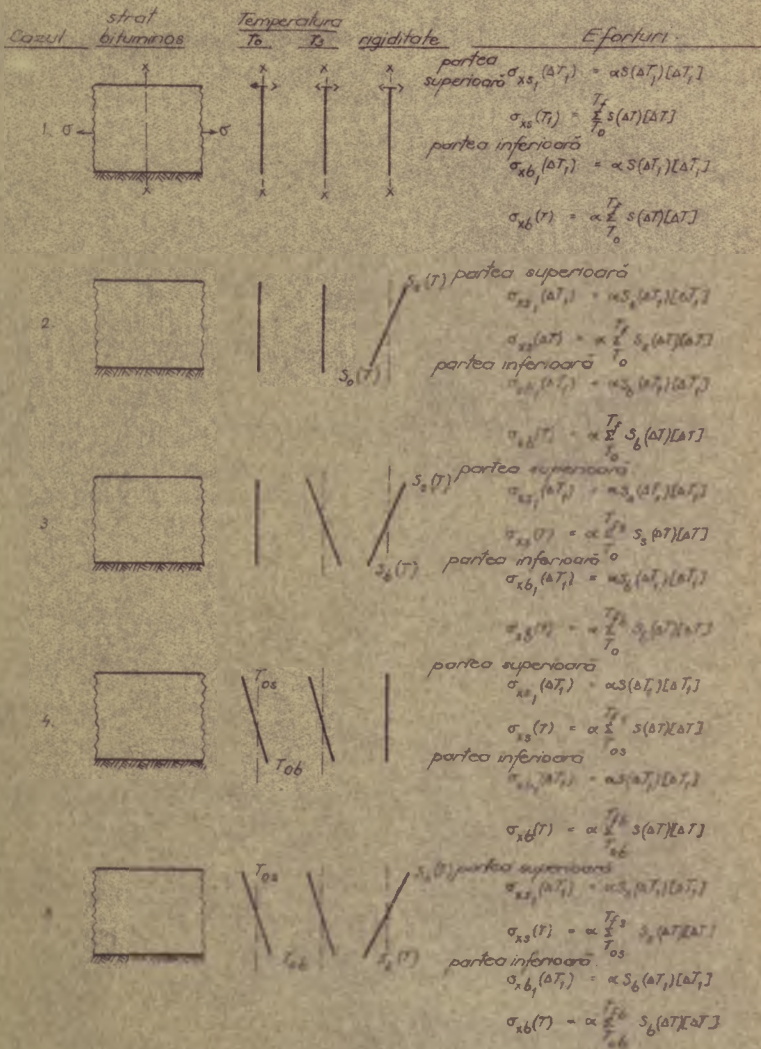 Cazul strat bituminos Temperatura To T3 rigiditate Eforturi
1. σ σ x x x x x x x x
partea superioară σxs1(ΔT1) = αS(ΔT1)[ΔT1]
σxs(T1) = Σ Tf To S(ΔT)[ΔT]
partea inferioară
σxb1(ΔT1) = αS(ΔT1)[ΔT1]
σxb(T) = α Σ Tf To S(ΔT)[ΔT]
2. Ss(T) So(T)
partea superioară
σxs1(ΔT1) = αSs(ΔT1)[ΔT1]
σxs(ΔT) = α Σ Tf To Ss(ΔT)[ΔT]
partea inferioară
σxb1(ΔT1) = αSb(ΔT1)[ΔT1]
σxb(T) = α Σ Tf To Sb(ΔT)[ΔT]
3 Ss(T) Sb(T)
partea superioară
σxs1(ΔT1) = αSs(ΔT1)[ΔT1]
σxs(T) = α Σ Tfs To Ss(ΔT)[ΔT]
partea inferioară
σxb1(ΔT1) = αSb(ΔT1)[ΔT1]
σxb(T) = α Σ Tfb To Sb(ΔT)[ΔT]
4. Tos Tob
partea superioară
σxs1(ΔT1) = αS(ΔT1)[ΔT1]
σxs(T) = α Σ Tfs Tos S(ΔT)[ΔT]
partea inferioară
σxb1(ΔT1) = αS(ΔT1)[ΔT1]
σxb(T) = α Σ Tfb Tob S(ΔT)[ΔT]
Tos Tob Ss(T) Sb(T)
partea superioară
σxs1(ΔT1) = αSs(ΔT1)[ΔT1]
σxs(T) = α Σ Tfs Tos Ss(ΔT)[ΔT]
partea inferioară
σxb1(ΔT1) = αSb(ΔT1)[ΔT1]
σxb(T) = α Σ Tfb Tob Sb(ΔT)[ΔT]